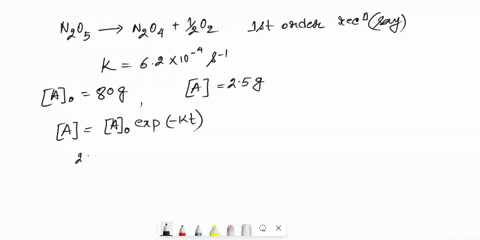 N₂O₅ ⟶ N₂O₄ + ½O₂ 1st order recⁿ (say)
K = 6.2 × 10⁻⁴ s⁻¹
[A]₀ = 80g, [A] = 2.5g
[A] = [A]₀ exp(-Kt)
2.